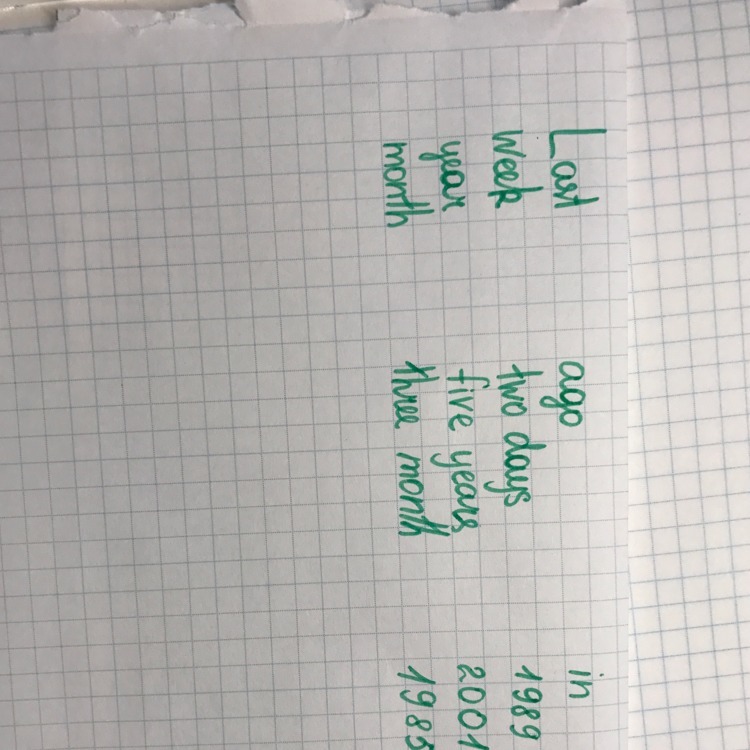 Last ago in
week two days 1989
year five years 2001
month three month 1985